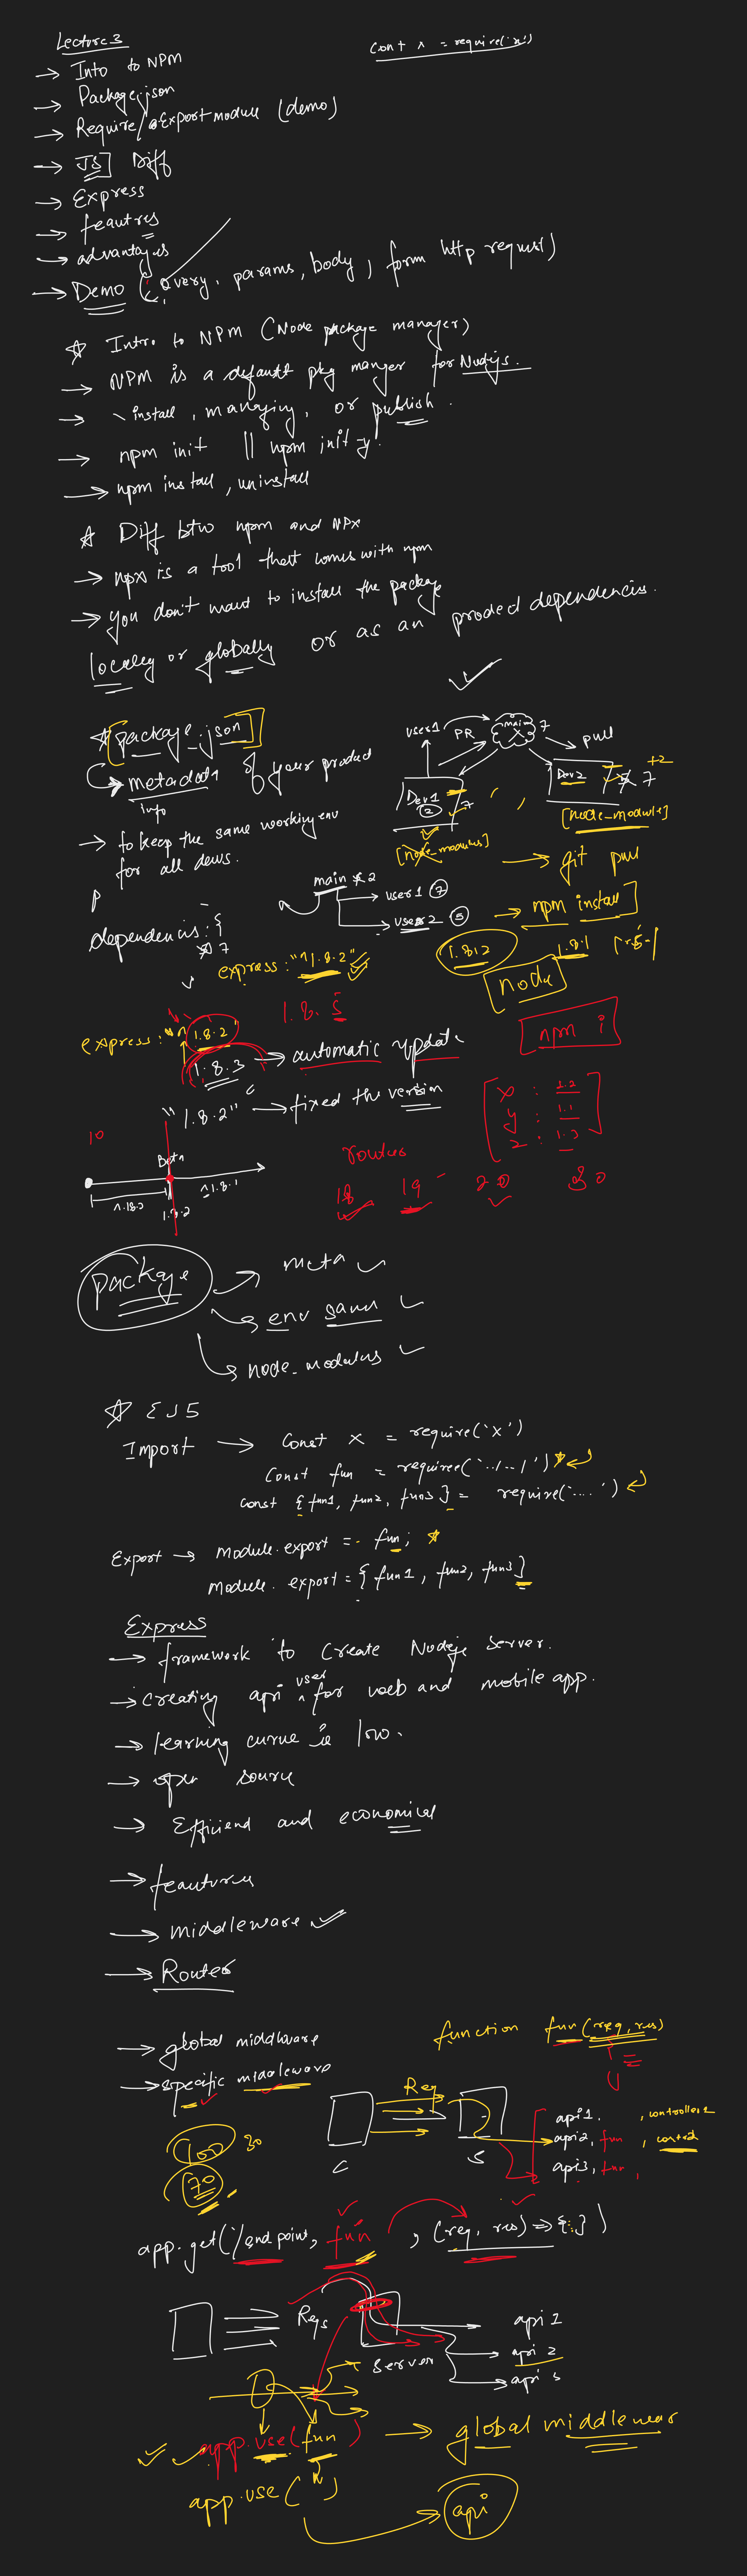 Lecture 3
Cont x = require('x')
→ Into to NPM
→ Package.json
→ Require/Export module (demo)
→ JS] Diff
→ Express
→ feautres
→ advantages
→ Demo (Query, params, body, form http request)
☆ Intro to NPM (Node package manager)
→ NPM is a default pkg manger for Nodejs.
→ install, managing, or publish.
→ npm init || npm init -y.
→ npm install, uninstall
☆ Diff btw npm and NPx
→ npx is a tool that comes with npm
→ you don't want to install the package
locally or globally or as an
dependencis.
☆ [package.json]
→ metadata of your product
info
→ to keep the same working env
for all devs.
user1 PR main 7
→ pull
Dev1
② 7
Dev2 7 +2
[node_modules]
[node_module]
→ git pull
→ npm install]
main 2
→ user1 ⑦
→ user2 ⑤
P
dependencis: {
7
express: "^1.8.2"
1.8.2 1.8.1
[node]
1.8.5
[npm i]
express: "^1.8.2"
1.8.3 → automatic update
"1.8.2" → fixed the version
x : 1.2
y : 1.1
z : 1.3
10
Beta
^1.8.1
1.8.2
routes
18 19 20
package
→ meta
→ env same
→ node_modules
☆ EJ5
Import → Const x = require('x')
Const fun = requiree('../../')
const {fun1, fun2, fun3} = require('....')
Export → module.export = fun;
Module.export = {fun1, fun2, fun3}
Express
→ framework to Create Nodeje server.
used
→ creating api for web and mobile app.
→ learning curve is low.
→ open source
→ Efficiend and economical
→ feautures
→ middleware
→ Router
→ global middleware
→ specific middleware
function fun(req, res)
Req
C
S
api1, controller1
api2, fun, control
api3, fun,
100 30
70
app.get('/end point, fun, (req, res) => {:})
Reqs
server
api 1
api 2
api 3
app.use(fun) → global middlewear
app.use( )
→ api